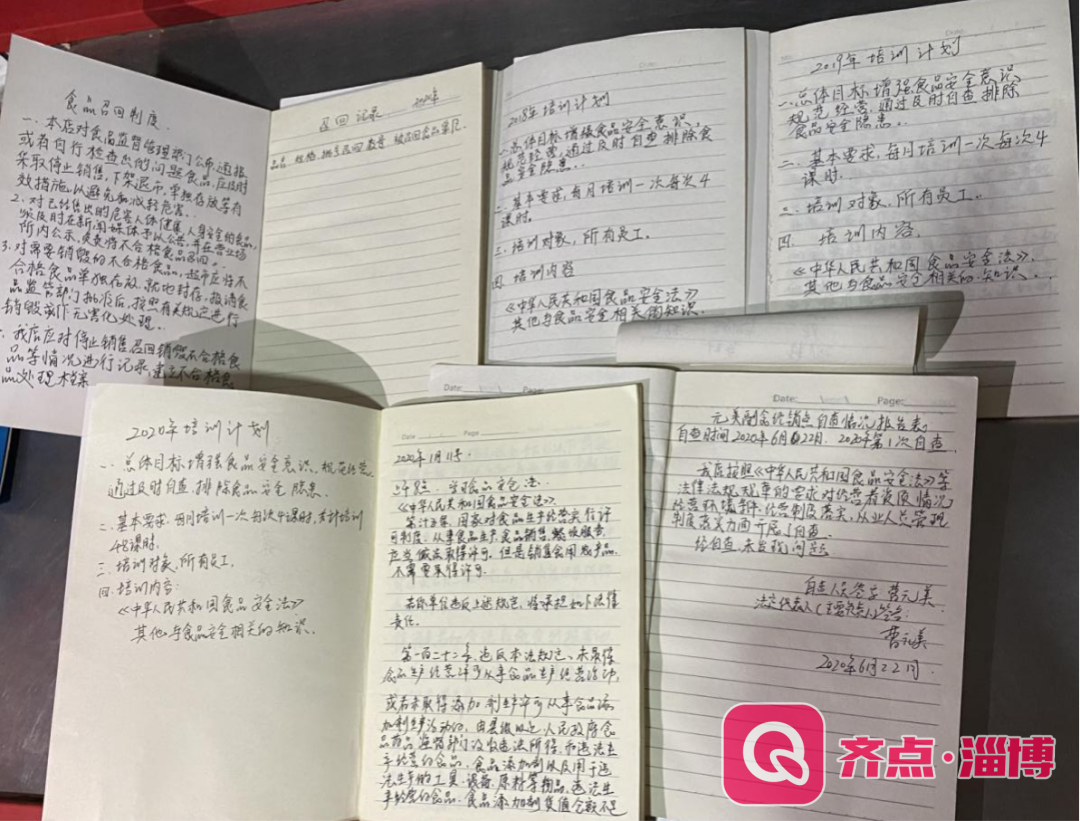 食品召回制度.
一.本店对食品监督管理部门公布,通报
或者自行检查出的问题食品,应及时
采取停止销售,下架退市,单独存放等有
效措施,以避免和减轻危害.
2.对已经售出的危害人体健康,人身安全的食品,
须及时在新闻媒体予以公告,并在营业场
所内公示,负责将不合格食品召回.
3.对需要销毁的不合格食品,超市应将不
合格食品单独存放,就地封存,报请食
品监管部门批准后,按照有关规定进行
销毁或作无害化处理.
我店应对停止销售召回销毁不合格食
品等情况进行记录,建立不合格食
品处理档案
召回记录 2020年
品名 规格 批号 召回数量 被召回食品单位
2018年培训计划
一.总体目标增强食品安全意识,
规范经营,通过及时自查排除食
品安全隐患..
二.基本要求,每月培训一次每次4
课时.
三.培训对象,所有员工.
四.培训内容
《中华人民共和国食品安全法》
其他与食品安全相关的知识.
2019年培训计划
一.总体目标增强食品安全意识
规范经营,通过及时自查排除
食品安全隐患.
二.基本要求,每月培训一次每次4
课时.
三.培训对象,所有员工.
四.培训内容.
《中华人民共和国食品安全法》.
其他与食品安全相关的知识.
2020年培训计划
一.总体目标增强食品安全意识,规范经营,
通过及时自查,排除食品安全隐患.
二.基本要求每月培训一次每次4课时,累计培训
48课时.
三.培训对象,所有员工.
四.培训内容:
《中华人民共和国食品安全法》
其他与食品安全相关的知识.
Date Page
2020年1月11号.
学习食品安全法.
《中华人民共和国食品安全法》
第卅五条,国家对食品生产经营实行许
可制度.从事食品生产,食品销售,餐饮服务,
应当依法取得许可.但是销售食用农产品,
不需要取得许可.
若你单位违反上述规定,将承担如下法律
责任.
第一百二十二条,违反本法规定、未取得
食品生产经营许可从事食品生产经营活动,
或者未取得添加剂生产许可从事食品添
加剂生产活动的,由县级以上人民政府食
品药品监督部门没收违法所得和违法生
产经营的食品,食品添加剂以及用于违
法生产的工具,设备,原料等物品,违法生
产经营的食品,食品添加剂货值金额不足
Date: Page:
Date: Page:
元美副食经销点自查情况报告表,
自查时间2020年6月22日. 2020年第1次自查.
我店按照《中华人民共和国食品安全法》等
法律法规规章的要求对经营者资质情况,
经营环境条件,经营制度落实,从业人员管理
制度落实方面开展了自查.
经自查,未发现问题
自查人员签字 曹元美.
法定代表人(主要负责人)签字
曹元美
2020年6月22日.
齐点·淄博